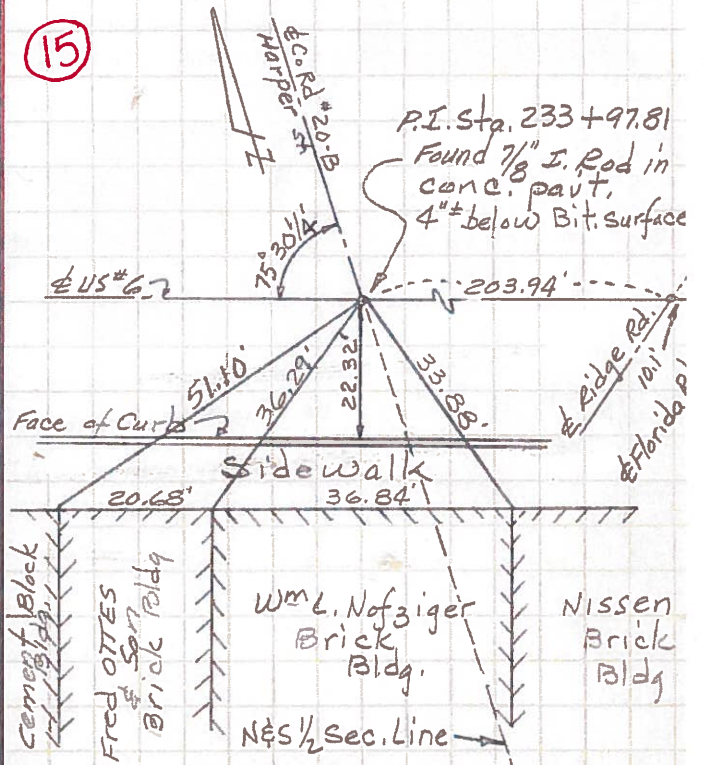 15
℄ Co. Rd #20-B
Harper St.
P.I. Sta. 233+97.81
Found 7/8" I. Rod in
conc. pavt.
4"± below Bit. surface
75° 30 1/4'
℄ US #6
203.94'
51.10'
36.29'
22.32'
33.88'
℄ Ridge Rd.
10.1'
℄ Florida
Face of Curb
Sidewalk
20.68'
36.84'
Cement Block
Bldg.
Fred OTTES
& Son
Brick Bldg
Wm L. Nofziger
Brick
Bldg.
Nissen
Brick
Bldg
N&S 1/2 Sec. Line